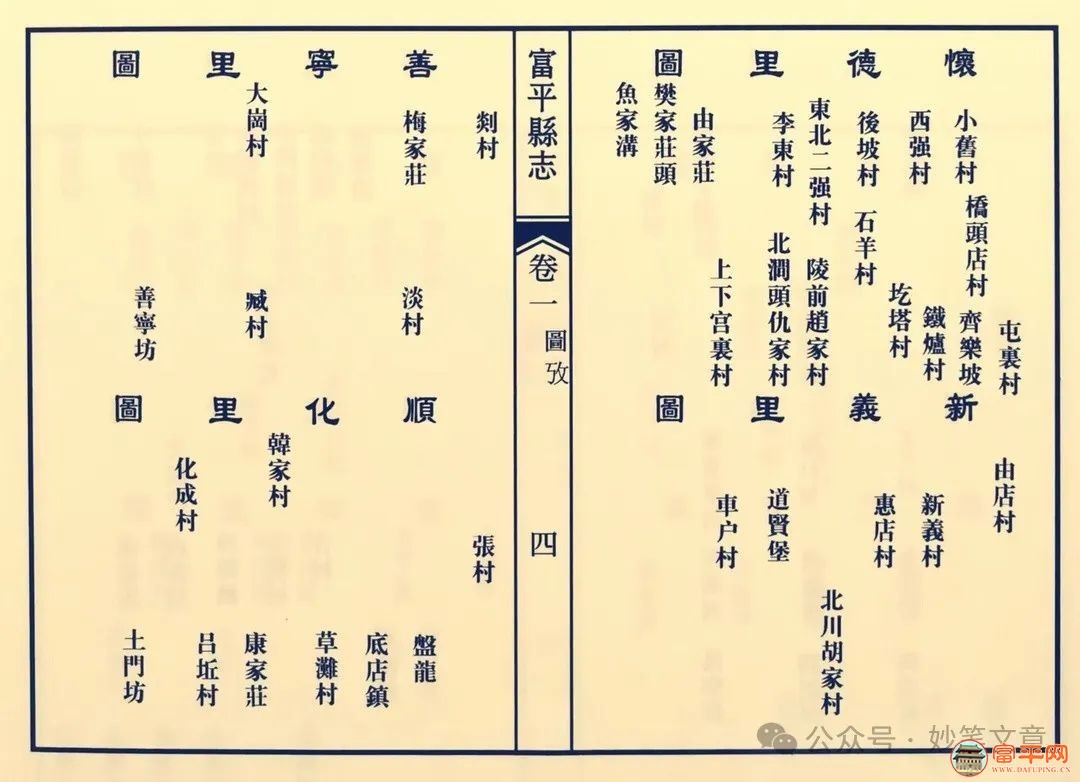 懷德里圖
小舊村
橋頭店村
屯裏村
齊樂坡
西强村
鐵爐村
圪塔村
後坡村
石羊村
東北二强村
陵前趙家村
李東村
北澗頭仇家村
由家莊
上下宫裏村
樊家莊頭
魚家溝
新義里圖
由店村
新義村
惠店村
北川胡家村
道賢堡
車户村
富平縣志
卷一
圖攷
四
善寧里圖
剡村
梅家莊
淡村
大崗村
臧村
善寧坊
順化里圖
張村
盤龍
底店鎮
草灘村
韓家村
康家莊
吕坵村
化成村
土門坊
公众号·妙笔文章
富平网
WWW.DAFUPING.CN